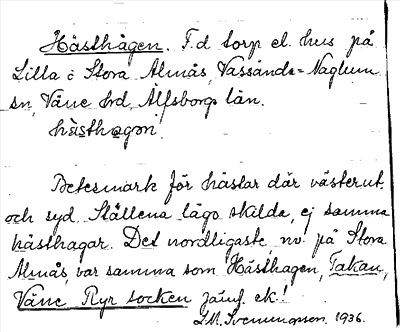 Hästhagen. F.d torp el. hus på
Lilla o Stora Almås, Vassända-Naglum
sn, Väne hrd, Älfsborgs län.
hästhagen.
Betesmark för hästar där västerut
och syd. Ställena lågo skilda, ej samma
hästhagar. Det nordligaste, nv. på Stora
Almås, var samma som Hästhagen, Takan,
Väne Ryr socken jämf. ek!
Svenningsson. 1936.